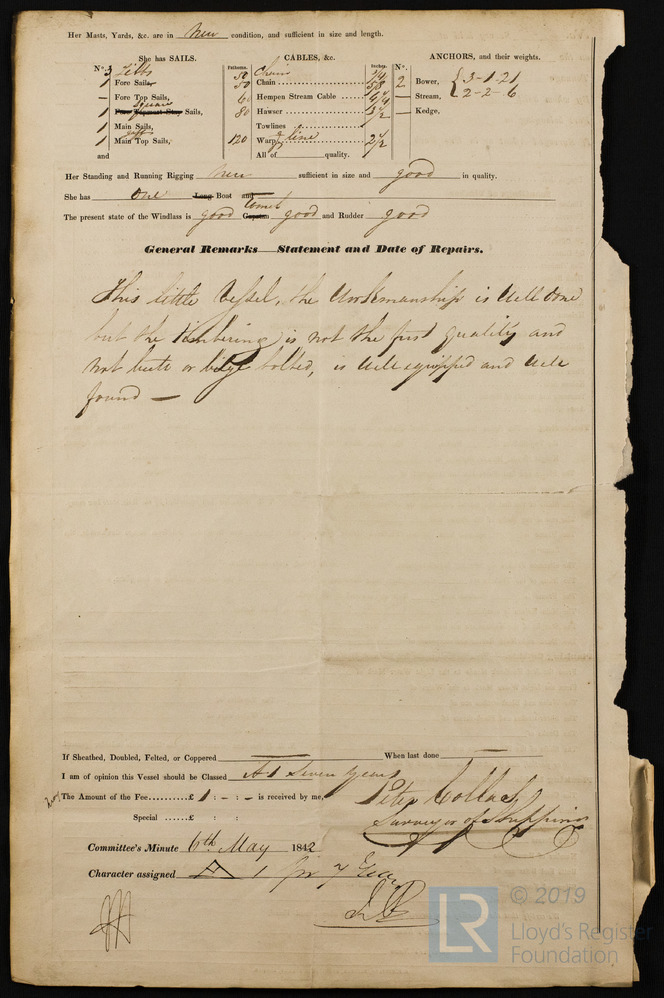 Her Masts, Yards, &c. are in New condition, and sufficient in size and length.
She has SAILS.
CABLES, &c.
ANCHORS, and their weights.
N°.
Fathoms.
Inches.
N°.
3 Jibbs
50 Chain 3/4
1 Fore Sails,
50 Chain 5/8
2 Bower, 3-1-21
2-2-6
– Fore Top Sails,
60 Hempen Stream Cable
– Stream,
1 Square Fore Topmast Stay Sails,
80 Hawser 3 1/2
– Kedge,
1 Main Sails,
Towlines
1 Gaff Main Top Sails,
120 Warp line 2 1/2
and
All of quality.
Her Standing and Running Rigging New sufficient in size and good in quality.
She has One Long Boat and
The present state of the Windlass is good Capstan good and Rudder good
General Remarks—Statement and Date of Repairs.
This little Vessel, the Workmanship is Well done
but the timbering is not the first quality and
not butt or bilge bolted, is Well equipped and Well
found —
If Sheathed, Doubled, Felted, or Coppered — When last done —
I am of opinion this Vessel should be Classed A1 Seven Years
The Amount of the Fee..........£ 1 : - : - is received by me,
Peter
Special ......£ : :
Surveyor of Shipping
Committee's Minute 6th May 1842
Character assigned A 1 for 7 Years
© 2019
LR
Lloyd's Register
Foundation